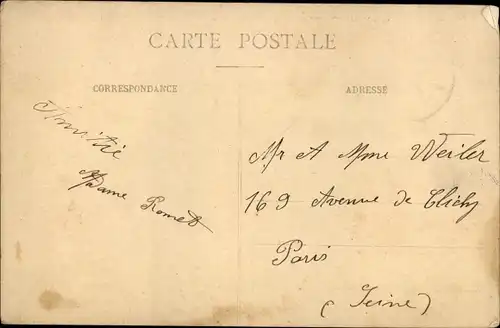 CARTE POSTALE
CORRESPONDANCE
ADRESSE
Amitié
Mdame Promet
Mr A Mme Weiler
169 Avenue de Clichy
Paris
(Seine)